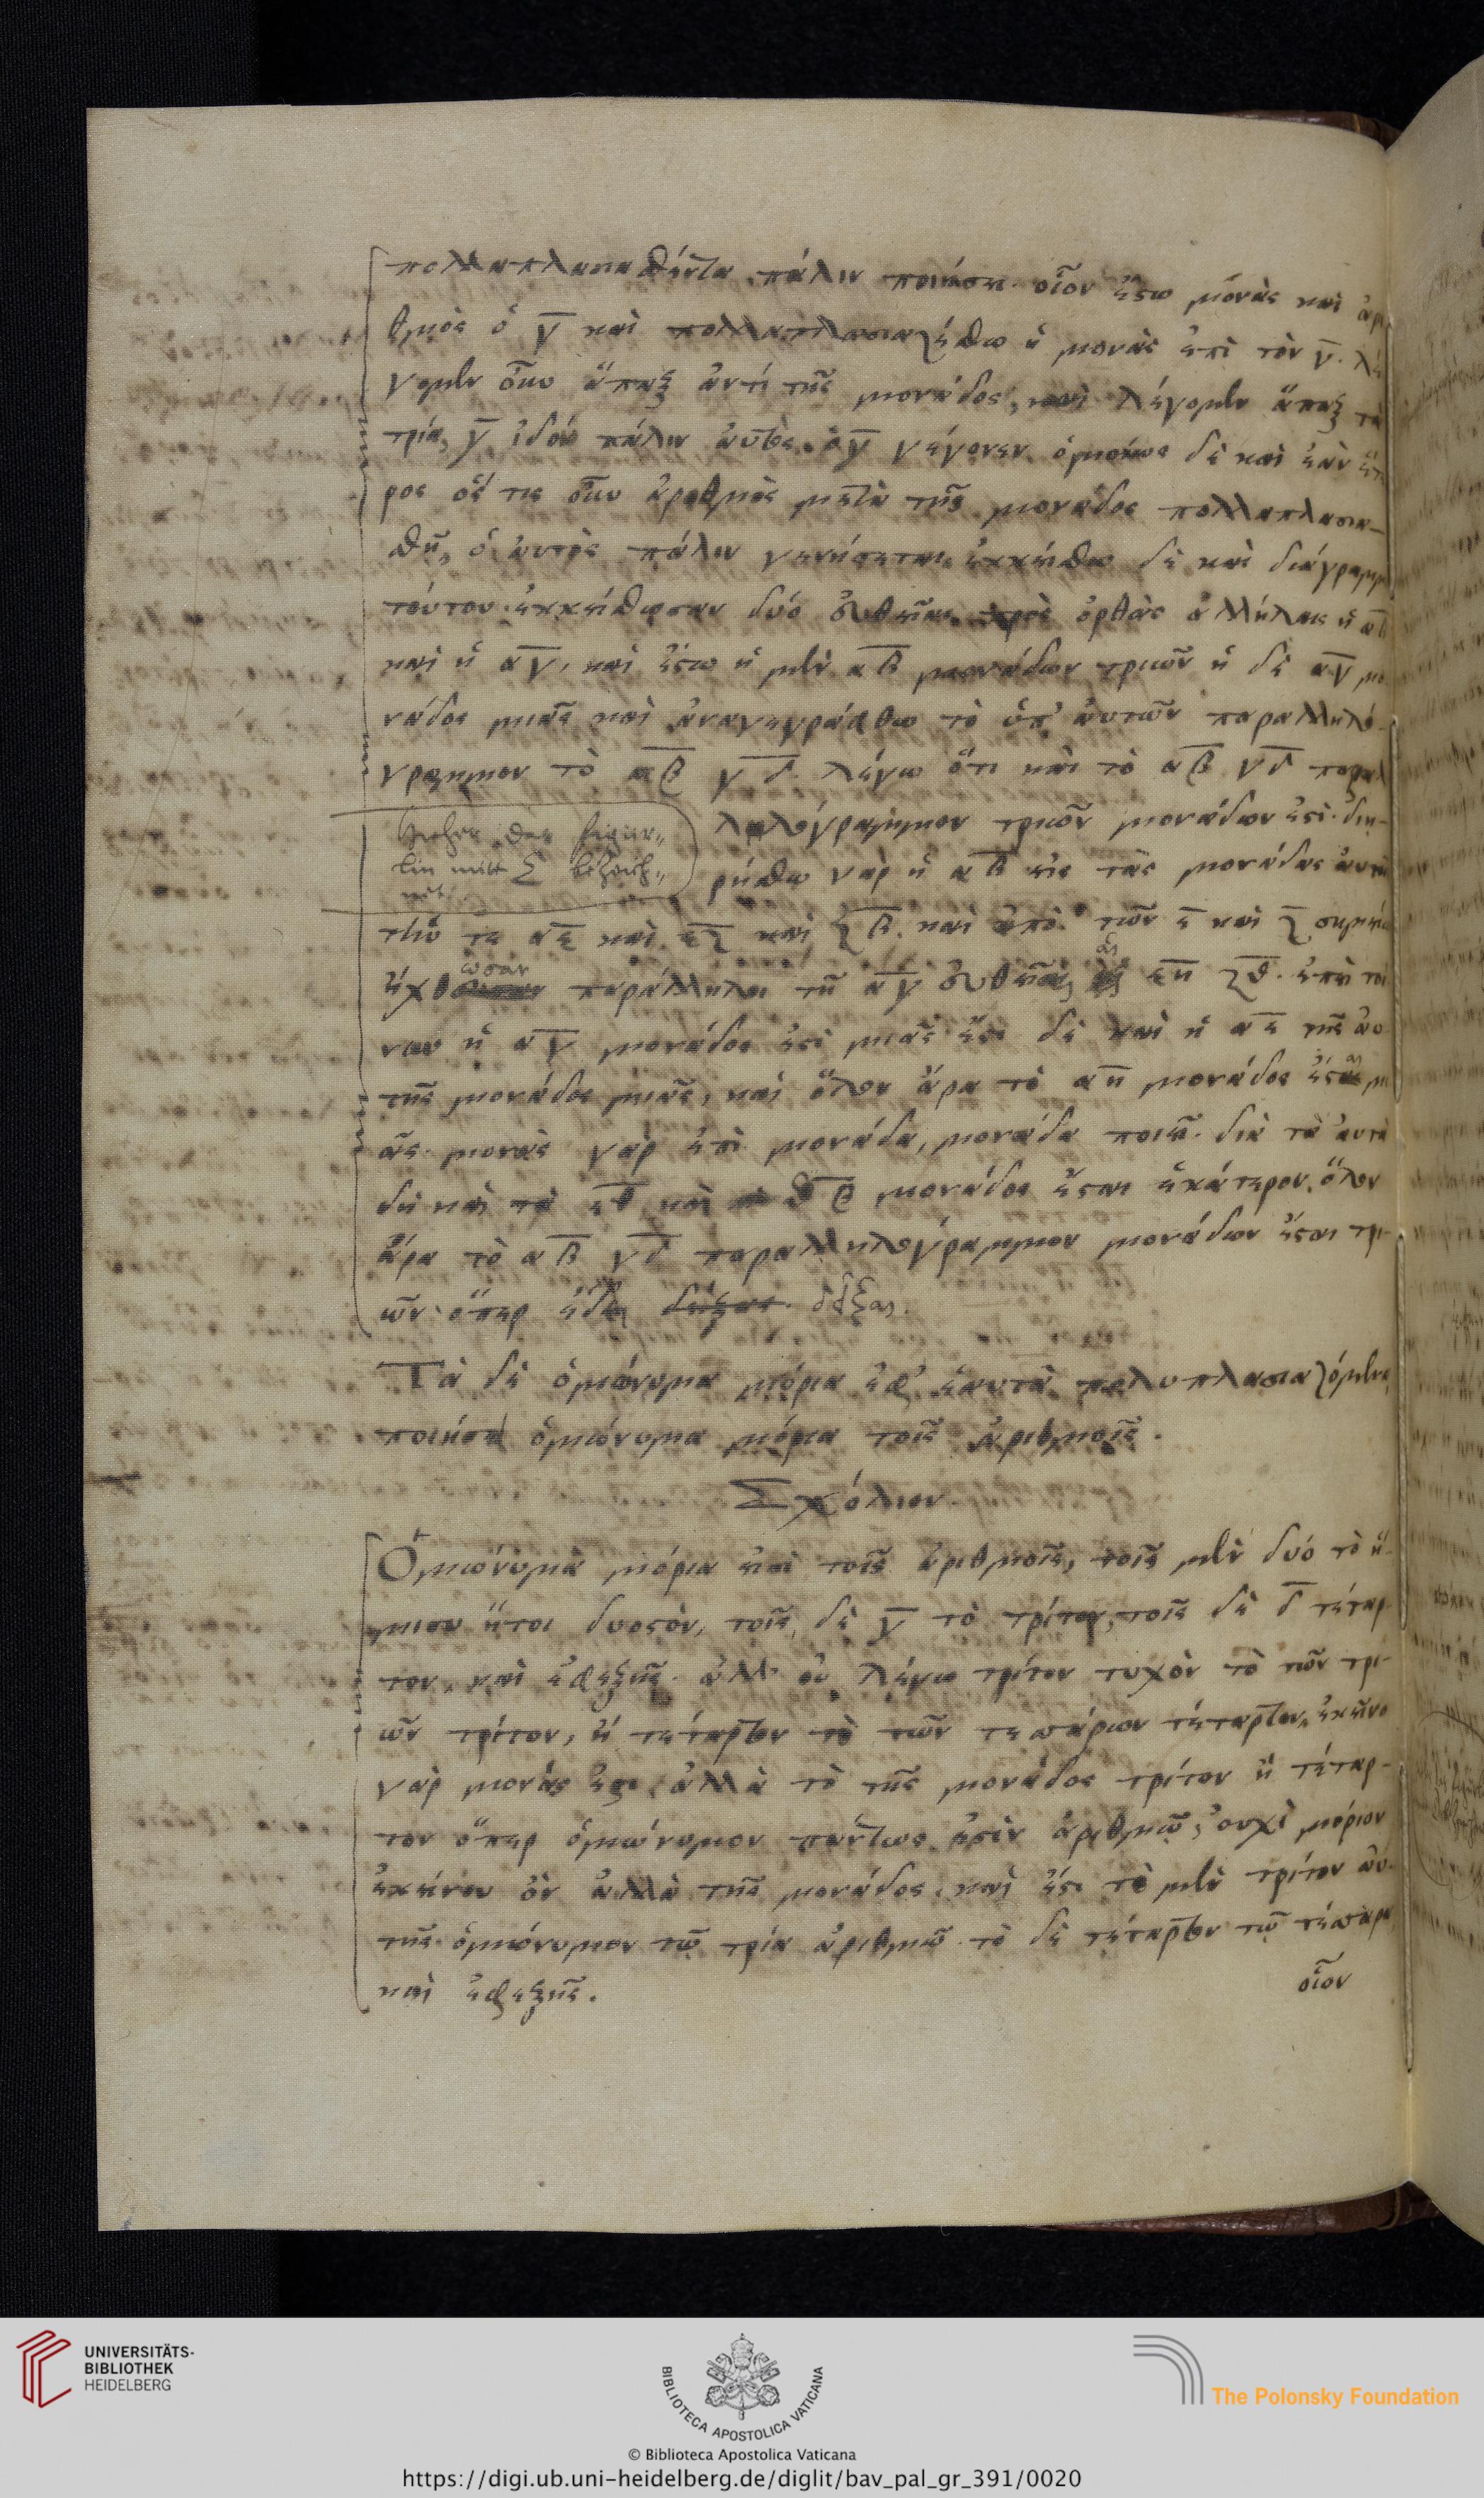 πολλαπλασιαθέντα πάλιν ποιήσει. οἷον ἔστω μονὰς καὶ ἀρι
θμὸς ὁ γ̅ καὶ πολλαπλασιαζέσθω ἡ μονὰς ἐπὶ τὸν γ̅. λέ
γομεν οὖν ἅπαξ ἀντὶ τῆς μονάδος, καὶ λέγομεν ἅπαξ τὰ
τρία, γ̅ ἰδοὺ πάλιν αὐτὸς ὁ γ̅ γέγονεν ὁμοίως δὲ καὶ ἐὰν ἕτε
ρος ὅς τις οὖν ἀριθμὸς μετὰ τῆς μονάδος πολλαπλασια-
σθῇ, ὁ αὐτὸς πάλιν γενήσεται. ἐκκείσθω δὲ καὶ διάγραμμα
τούτου. ἐκκείσθωσαν δύο εὐθεῖαι πρὸς ὀρθὰς ἀλλήλαις ἡ αβ
καὶ ἡ α̅γ̅, καὶ ἔστω ἡ μὲν α̅β̅ μονάδων τριῶν ἡ δὲ α̅γ̅ μο
νάδος μιᾶς καὶ ἀναγεγράφθω τὸ ὑπ' αὐτῶν παραλληλό-
γραμμον τὸ α̅β̅ γ̅δ̅. λέγω ὅτι καὶ τὸ α̅β̅ γ̅δ̅ παραλ
ληλόγραμμον τριῶν μονάδων ἐστί. διῃ-
ρήσθω γὰρ ἡ α̅β̅ εἰς τὰς μονάδας αὐτῆς
Hieher das figur-
lin mitt Σ bezeich-
net
τήν τε α̅ε̅ καὶ ε̅ζ̅ καὶ ζ̅β̅. καὶ ἀπὸ τῶν ε̅ καὶ ζ̅ σημείων
ἤχθωσαν παράλληλοι τῇ α̅γ̅ εὐθεῖαι αἱ ε̅η̅ ζ̅θ̅. ἐπεὶ τοί
νυν ἡ α̅γ̅ μονάδος ἐστὶ μιᾶς ἔστι δὲ καὶ ἡ α̅ε̅ τῆς αὐ
τῆς μονάδος μιᾶς, καὶ ὅλον ἄρα τὸ α̅η̅ μονάδος ἔσται μι
ᾶς. μονὰς γὰρ ἐπὶ μονάδα, μονάδα ποιεῖ. διὰ τὰ αὐτὰ
δὴ καὶ τὸ ε̅θ̅ καὶ θ̅β̅ μονάδος ἔσται ἑκάτερον. ὅλον
ἄρα τὸ α̅β̅ γ̅δ̅ παραλληλόγραμμον μονάδων ἔσται τρι
ῶν. ὅπερ ἔδει δεῖξαι.
Τὰ δὲ ὁμώνυμα μόρια ἐφ' ἑαυτὰ πολυπλασιαζόμενα
ποιήσει ὁμώνυμα μόρια τοῖς ἀριθμοῖς.
Σχόλιον
Ὁμώνυμα μόρια εἰσὶ τοῖς ἀριθμοῖς, τοῖς μὲν δύο τὸ ἥ-
μισυ ἤτοι δυοστὸν, τοῖς δὲ γ̅ τὸ τρίτον, τοῖς δὲ δ̅ τέταρ
τον, καὶ ἐφεξῆς. ἀλλ' οὐ λέγω τρίτον τυχὸν τὸ τῶν τρι
ῶν τρίτον, ἢ τέταρτον τὸ τῶν τεσσάρων τέταρτον, ἐκεῖνο
γὰρ μονάς ἐστι, ἀλλὰ τὸ τῆς μονάδος τρίτον ἢ τέταρ-
τον ὅπερ ὁμώνυμον πάντως ἐστὶν ἀριθμῷ, οὐχὶ μόριον
ἐκείνου ὂν ἀλλὰ τῆς μονάδος. καὶ ἔστι τὸ μὲν τρίτον αὐ-
τῆς ὁμώνυμον τῷ τρία ἀριθμῷ. τὸ δὲ τέταρτον τῷ τέσσαρα
καὶ ἐφεξῆς.
οἷον
UNIVERSITÄTS-
BIBLIOTHEK
HEIDELBERG
BIBLIOTECA APOSTOLICA VATICANA
The Polonsky Foundation
© Biblioteca Apostolica Vaticana
https://digi.ub.uni-heidelberg.de/diglit/bav_pal_gr_391/0020